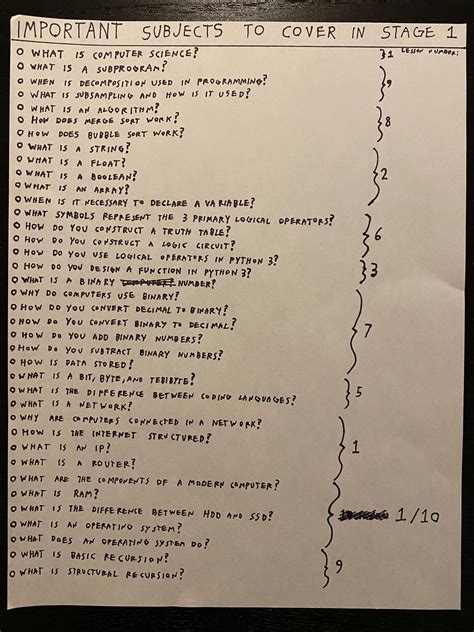 IMPORTANT SUBJECTS TO COVER IN STAGE 1
LESSON NUMBER:
O WHAT IS COMPUTER SCIENCE? }1
O WHAT IS A SUBPROGRAM?
O WHEN IS DECOMPOSITION USED IN PROGRAMMING? } 9
O WHAT IS SUBSAMPLING AND HOW IS IT USED?
O WHAT IS AN ALGORITHM?
O HOW DOES MERGE SORT WORK? } 8
O HOW DOES BUBBLE SORT WORK?
O WHAT IS A STRING?
O WHAT IS A FLOAT?
O WHAT IS A BOOLEAN? } 2
O WHAT IS AN ARRAY?
O WHEN IS IT NECESSARY TO DECLARE A VARIABLE?
O WHAT SYMBOLS REPRESENT THE 3 PRIMARY LOGICAL OPERATORS?
O HOW DO YOU CONSTRUCT A TRUTH TABLE? } 6
O HOW DO YOU CONSTRUCT A LOGIC CIRCUIT?
O HOW DO YOU USE LOGICAL OPERATORS IN PYTHON 3?
O HOW DO YOU DESIGN A FUNCTION IN PYTHON 3? } 3
O WHAT IS A BINARY NUMBER?
O WHY DO COMPUTERS USE BINARY?
O HOW DO YOU CONVERT DECIMAL TO BINARY?
O HOW DO YOU CONVERT BINARY TO DECIMAL? } 7
O HOW DO YOU ADD BINARY NUMBERS?
O HOW DO YOU SUBTRACT BINARY NUMBERS?
O HOW IS DATA STORED?
O WHAT IS A BIT, BYTE, AND TEBIBYTE?
O WHAT IS THE DIFFERENCE BETWEEN CODING LANGUAGES? } 5
O WHAT IS A NETWORK?
O WHY ARE COMPUTERS CONNECTED IN A NETWORK?
O HOW IS THE INTERNET STRUCTURED?
O WHAT IS AN IP? } 1
O WHAT IS A ROUTER?
O WHAT ARE THE COMPONENTS OF A MODERN COMPUTER?
O WHAT IS RAM?
O WHAT IS THE DIFFERENCE BETWEEN HDD AND SSD? } 1/10
O WHAT IS AN OPERATING SYSTEM?
O WHAT DOES AN OPERATING SYSTEM DO?
O WHAT IS BASIC RECURSION? } 9
O WHAT IS STRUCTURAL RECURSION?